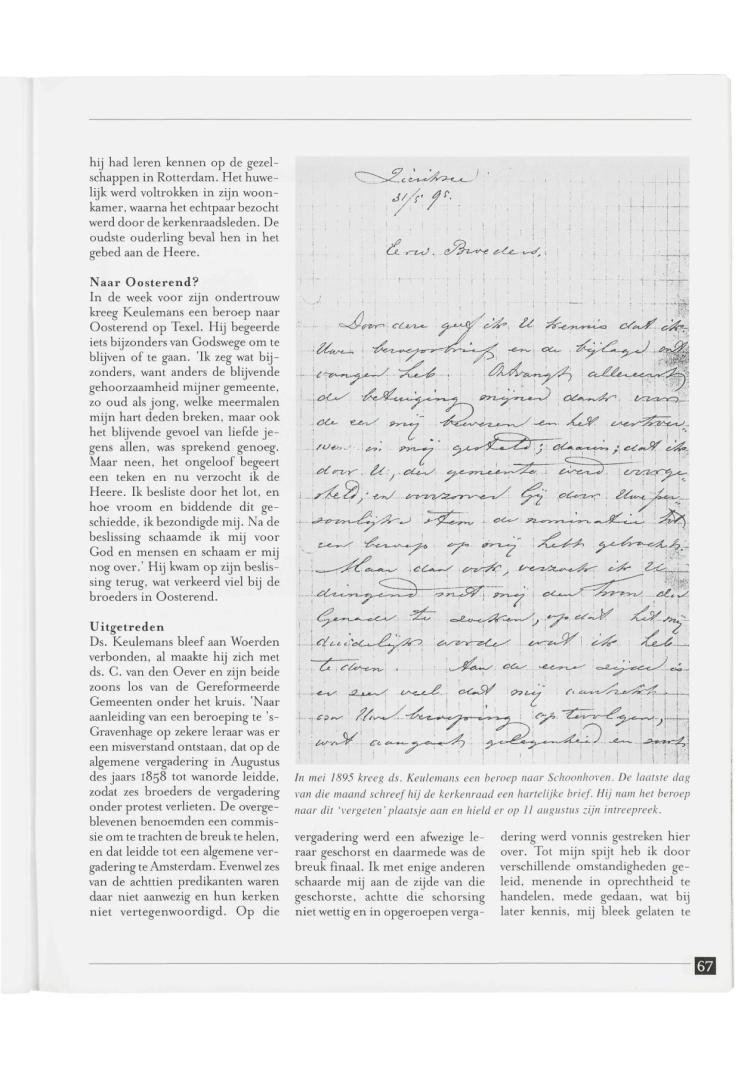 hij had leren kennen op de gezel-
schappen in Rotterdam. Het huwe-
lijk werd voltrokken in zijn woon-
kamer, waarna het echtpaar bezocht
werd door de kerkenraadsleden. De
oudste ouderling beval hen in het
gebed aan de Heere.
Naar Oosterend?
In de week voor zijn ondertrouw
kreeg Keulemans een beroep naar
Oosterend op Texel. Hij begeerde
iets bijzonders van Godswege om te
blijven of te gaan. 'Ik zeg wat bij-
zonders, want anders de blijvende
gehoorzaamheid mijner gemeente,
zo oud als jong, welke meermalen
mijn hart deden breken, maar ook
het blijvende gevoel van liefde je-
gens allen, was sprekend genoeg.
Maar neen, het ongeloof begeert
een teken en nu verzocht ik de
Heere. Ik besliste door het lot, en
hoe vroom en biddende dit ge-
schiedde, ik bezondigde mij. Na de
beslissing schaamde ik mij voor
God en mensen en schaam er mij
nog over.' Hij kwam op zijn beslis-
sing terug, wat verkeerd viel bij de
broeders in Oosterend.
Uitgetreden
Ds. Keulemans bleef aan Woerden
verbonden, al maakte hij zich met
ds. C. van den Oever en zijn beide
zoons los van de Gereformeerde
Gemeenten onder het kruis. 'Naar
aanleiding van een beroeping te 's-
Gravenhage op zekere leraar was er
een misverstand ontstaan, dat op de
algemene vergadering in Augustus
des jaars 1858 tot wanorde leidde,
zodat zes broeders de vergadering
onder protest verlieten. De overge-
blevenen benoemden een commis-
sie om te trachten de breuk te helen,
en dat leidde tot een algemene ver-
gadering te Amsterdam. Evenwel zes
van de achttien predikanten waren
daar niet aanwezig en hun kerken
niet vertegenwoordigd. Op die
Zierikzee
31/5 95.
Eerw. Broeders,
Door deze geef ik U kennis dat ik
Uwe beroepsbrief en de bijlage ont
vangen heb. Ontvangt allereerst
de betuiging mijner dank voor
de eer mij bewezen en het vertrou-
wen in mij gesteld; daarin; dat ik
door U, der gemeente werd voorge-
steld; en voorzover Gij door Uwe per-
soonlijke stem de nominatie tot
een beroep op mij hebt gebracht.
Maar dan ook, verzoek ik U
dringend met mij den troon der
Genade te zoeken, opdat het mij
duidelijk worde wat ik heb
te doen. Aan de eene zijde is
er zeer veel dat mij aantrekt
om Uwe beroeping op te volgen,
wat aangaat gelegenheid en
In mei 1895 kreeg ds. Keulemans een beroep naar Schoonhoven. De laatste dag
van die maand schreef hij de kerkenraad een hartelijke brief. Hij nam het beroep
naar dit 'vergeten' plaatsje aan en hield er op 11 augustus zijn intreepreek.
vergadering werd een afwezige le-
raar geschorst en daarmede was de
breuk finaal. Ik met enige anderen
schaarde mij aan de zijde van die
geschorste, achtte die schorsing
niet wettig en in opgeroepen verga-
dering werd vonnis gestreken hier
over. Tot mijn spijt heb ik door
verschillende omstandigheden ge-
leid, menende in oprechtheid te
handelen, mede gedaan, wat bij
later kennis, mij bleek gelaten te
67